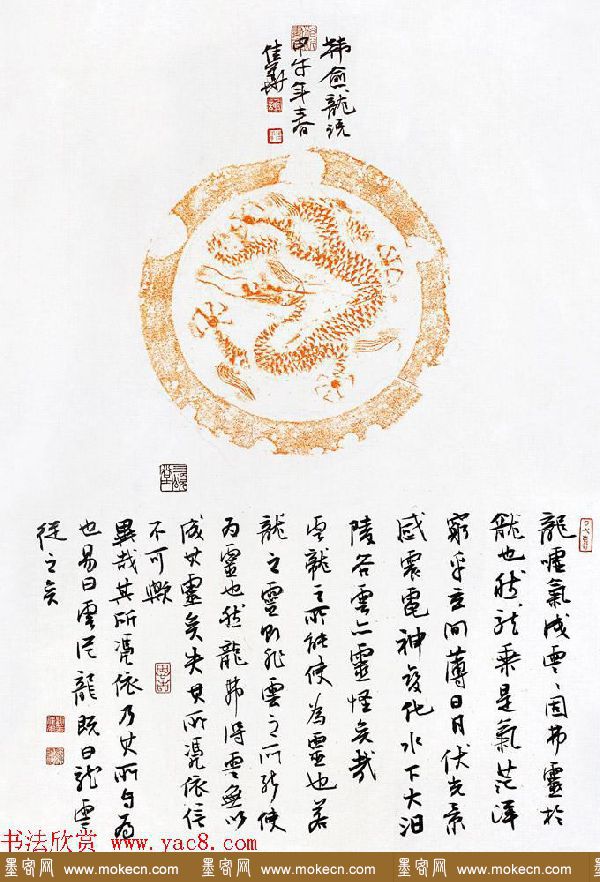 韩愈龍说
甲午年春
龍噓氣成雲、固弗靈於
龍也然龍乘是氣茫洋
窮乎玄间薄日月伏光景
感震電神變化水下大汩
陵谷雲亦靈怪矣哉
雲龍之所能使為靈也若
龍之靈則非雲之所能使
為靈也然龍弗得雲無以
成其靈矣失其所憑依信
不可歟
異哉其所憑依乃其所自為
也易曰雲從龍既曰龍雲
從之矣
书法欣赏 www.yac8.com
墨客网 www.mokecn.com 墨客网 www.mokecn.com 墨客网 www.mokecn.com